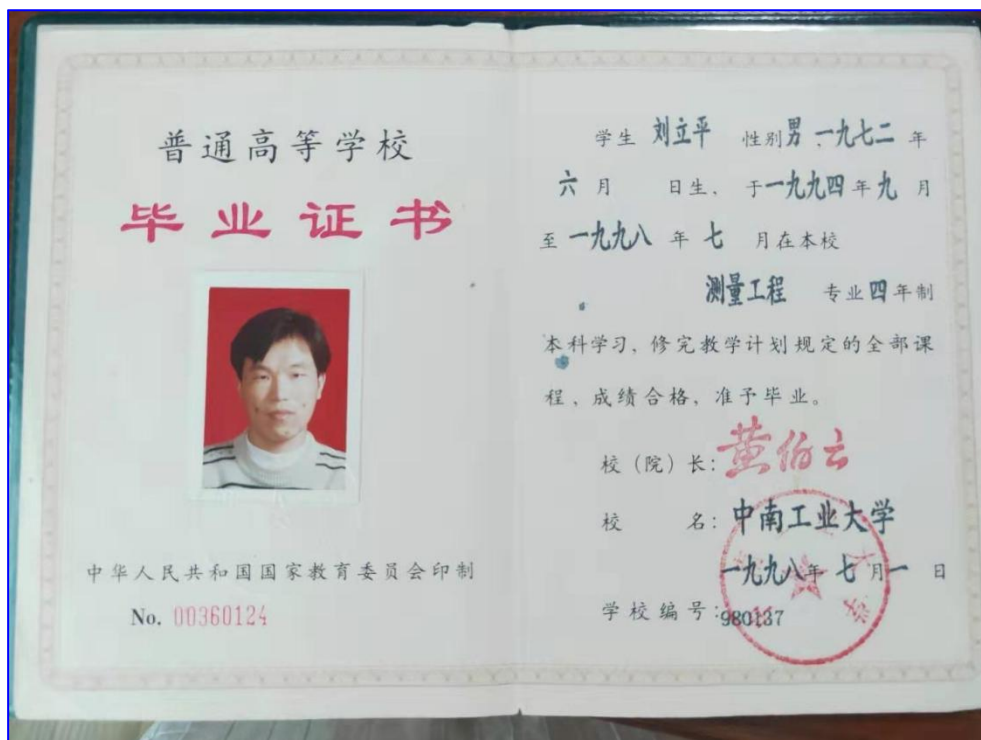 普通高等学校
毕业证书
中华人民共和国国家教育委员会印制
No. 00360124
学生 刘立平 性别男、一九七二 年
六 月 日生、于一九九四年九 月
至一九九八 年 七 月在本校
测量工程 专业四年制
本科学习,修完教学计划规定的全部课
程、成绩合格,准予毕业。
校(院)长:黄伯云
校 名:中南工业大学
一九九八年 七 月一 日
学校编号:980137